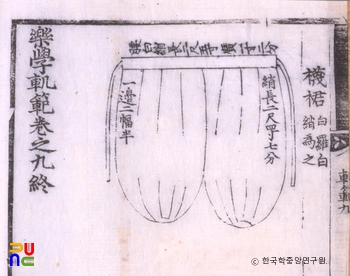 襪裙
白羅白
綃為之
綃長二尺
七分
白綃長二尺
一邊二幅半
樂學軌範卷之九終
© 한국학중앙연구원